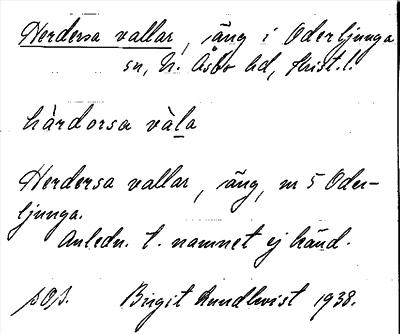 Herdersa vallar, äng i Oderljunga
sn, N. Åsbo hd, Krist. l.
hàrdorsa vàla
Herdersa vallar, äng, m 5 Oder-
ljunga.
Anledn. t. namnet ej känd.
Birgit 1938.